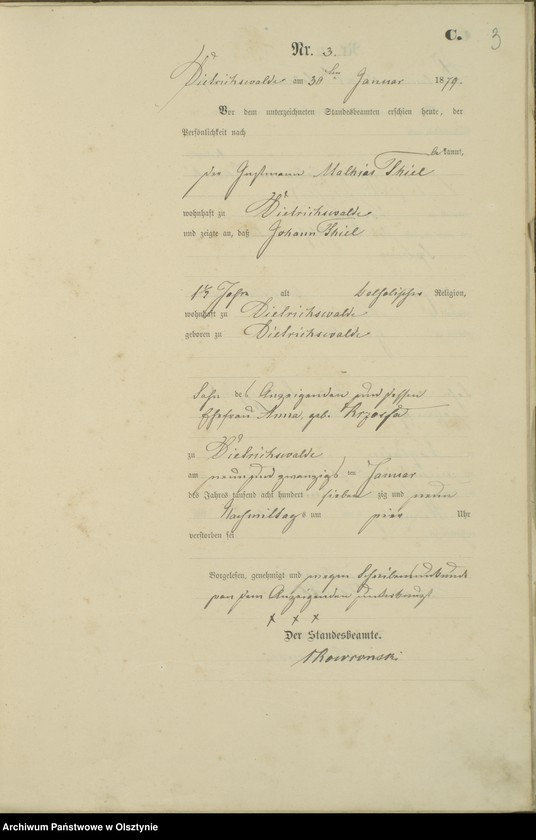 C.
3
Nr. 3.
Dietrichswalde am 30ten Januar 1879.
Vor dem unterzeichneten Standesbeamten erschien heute, der
Persönlichkeit nach
bekannt,
der Mathias Skiel
wohnhaft zu Dietrichswalde
und zeigte an, daß Johann Skiel
1½ Jahr alt katholischer Religion,
wohnhaft zu Dietrichswalde
geboren zu Dietrichswalde
Sohn des Anzeigenden und dessen
Ehefrau Anna, geb.
zu Dietrichswalde
am neun und zwanzigsten Januar
des Jahres tausend acht hundert siebenzig und neun
Nachmittags um vier Uhr
verstorben sei
Vorgelesen, genehmigt und wegen Schreibensunkunde
von dem Anzeigenden unterkreuzt
x x x
Der Standesbeamte.
Skowronski
Archiwum Państwowe w Olsztynie